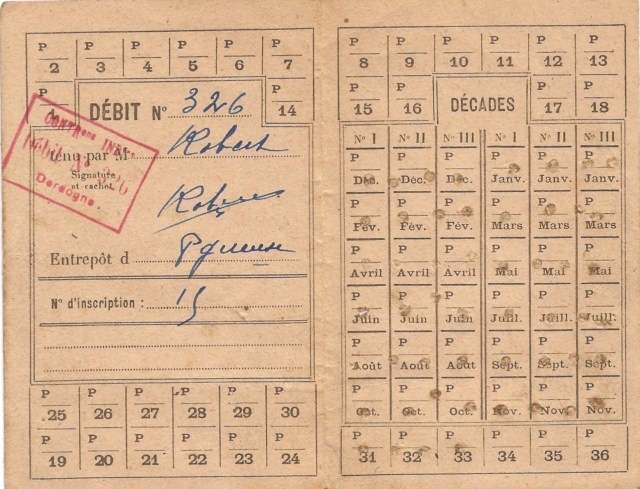 P P P P P P
2 3 4 5 6 7
DÉBIT N° 326
P
14
tenu par M Robert
Signature
et cachet.
Entrepôt d
N° d'inscription : 15
CONTR
Dordogne.
P P P P P P
25 26 27 28 29 30
P P P P P P
19 20 21 22 23 24
P P P P P P
8 9 10 11 12 13
P P DÉCADES P P
15 16 17 18
N° I N° II N° III N° I N° II N° III
P P P P P P
Déc. Déc. Déc. Janv. Janv. Janv.
P P P P P P
Fév. Fév. Fév. Mars Mars Mars
P P P P P P
Avril Avril Avril Mai Mai Mai
P P P P P P
Juin Juin Juin Juill. Juill. Juill.
P P P P P P
Août Août Août Sept. Sept. Sept.
P P P P P P
Oct. Oct. Oct. Nov. Nov. Nov.
P P P P P P
31 32 33 34 35 36